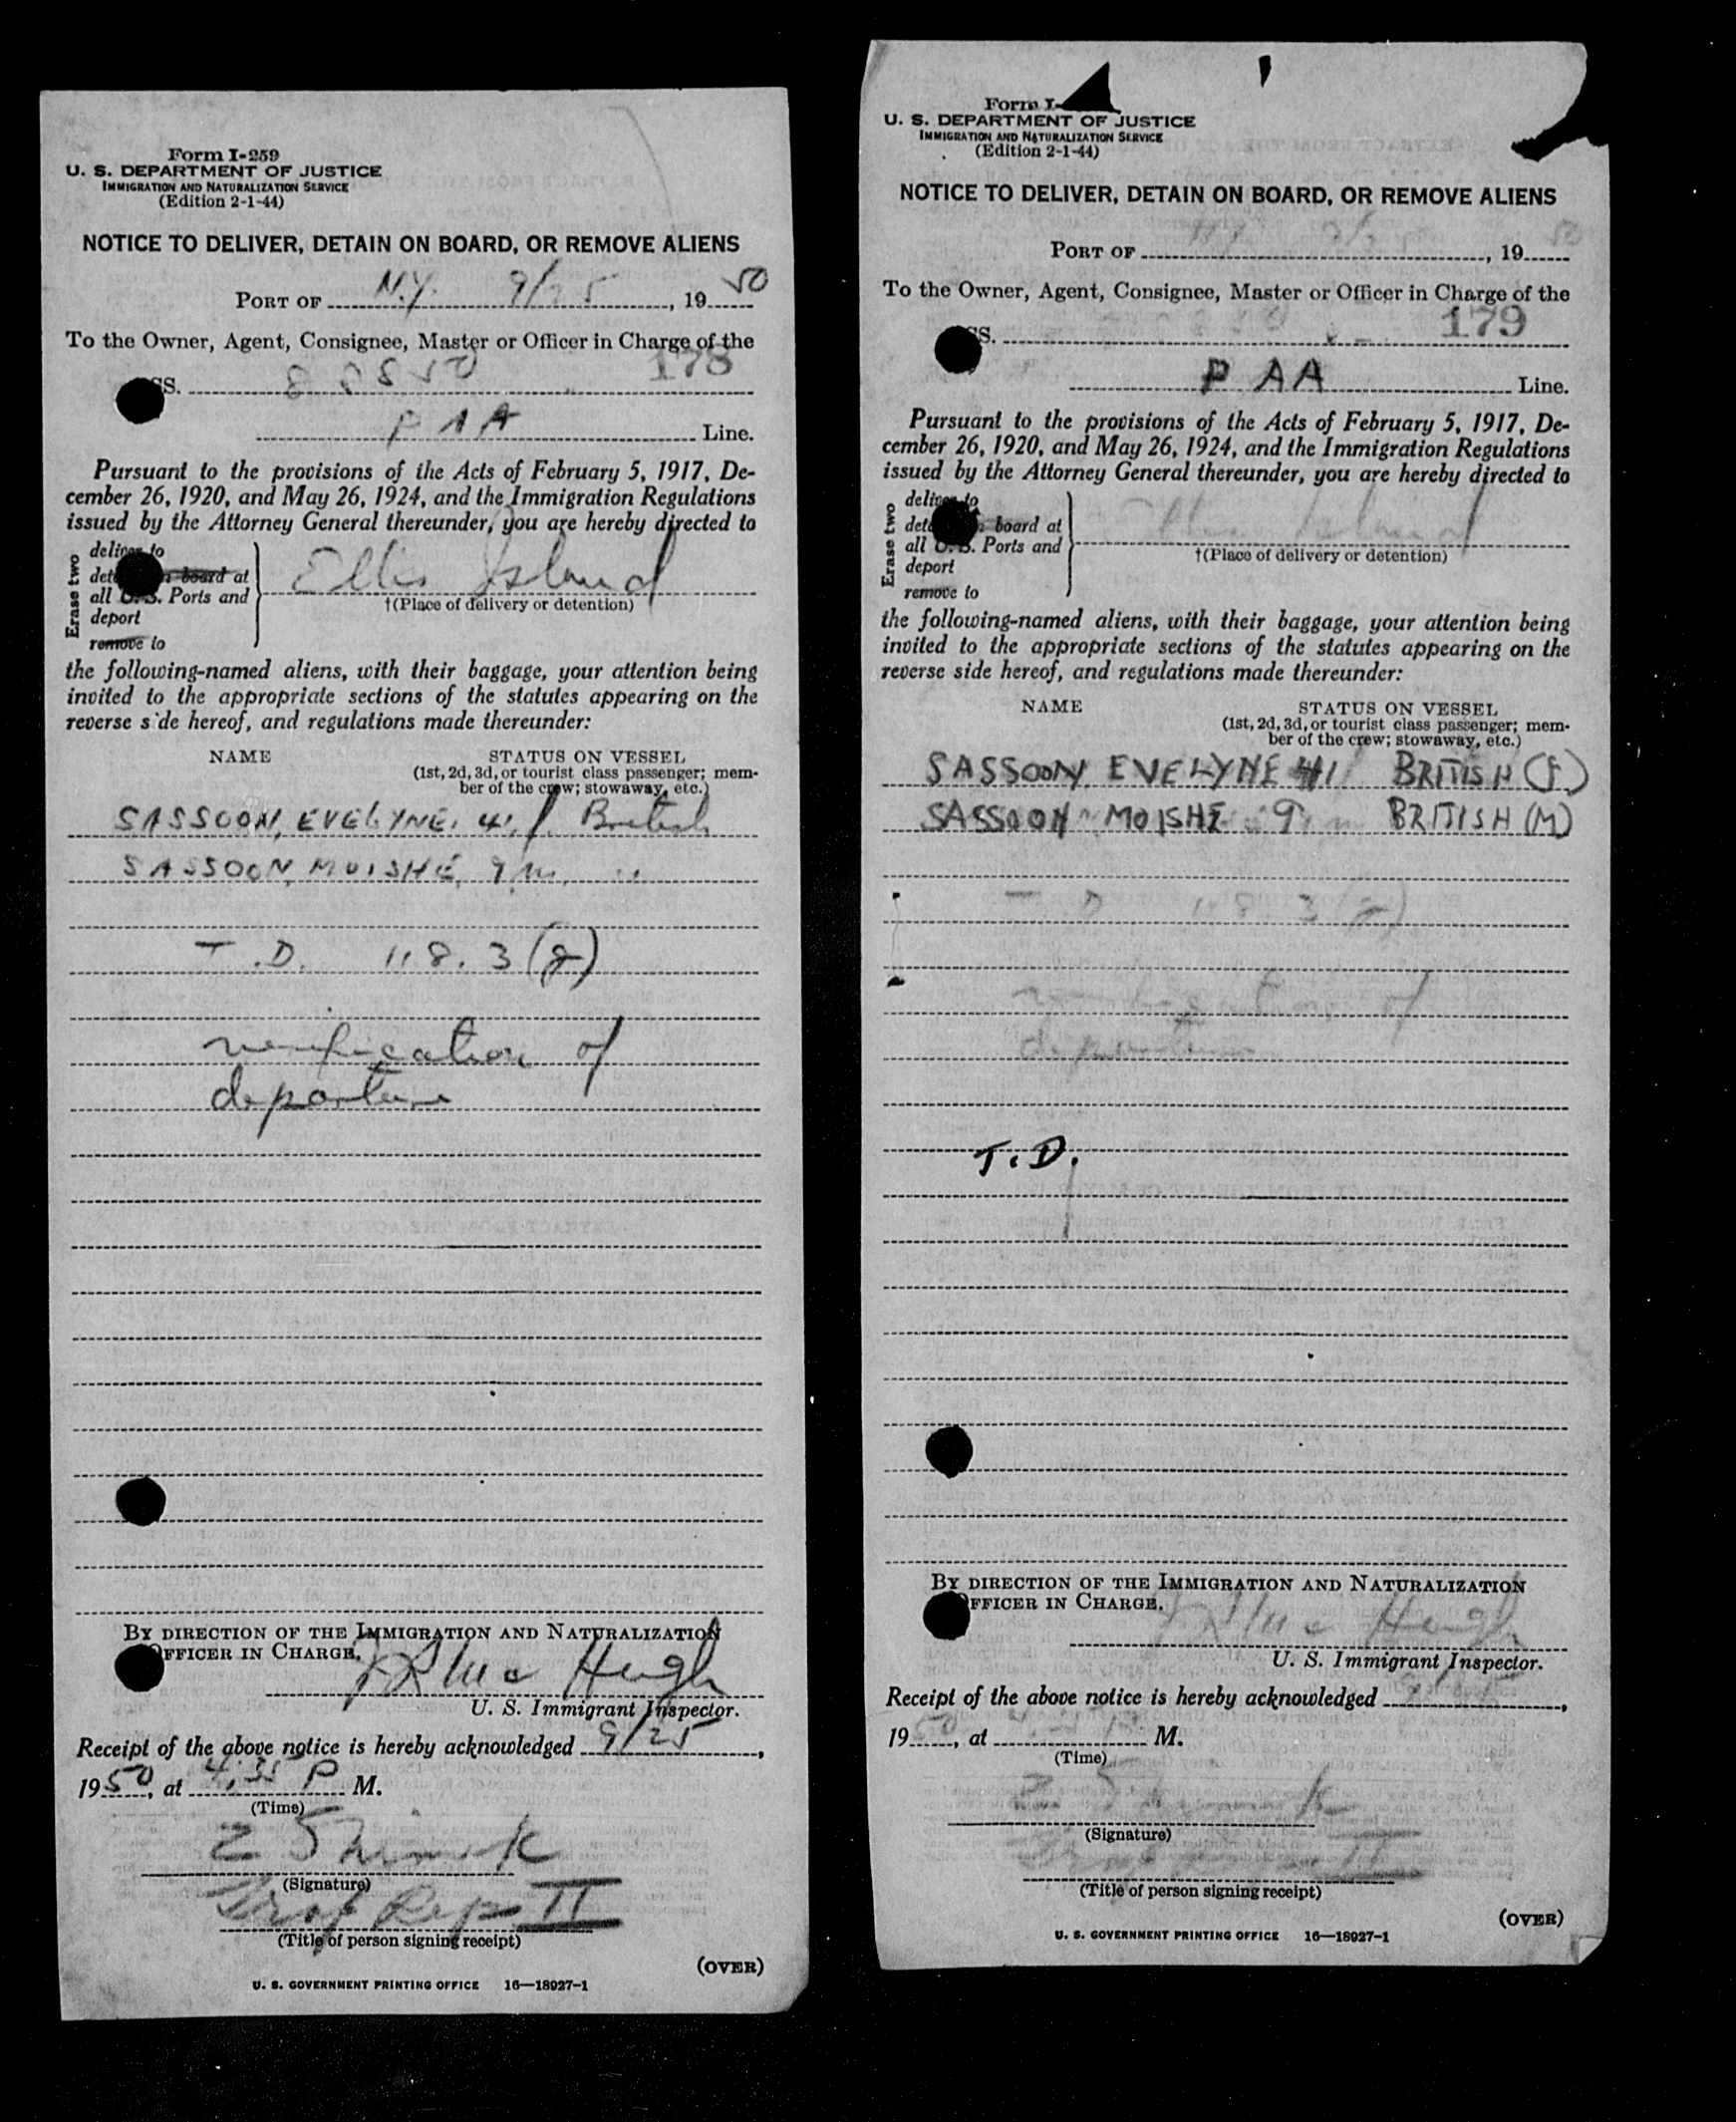 Form I-259
U. S. DEPARTMENT OF JUSTICE
IMMIGRATION AND NATURALIZATION SERVICE
(Edition 2-1-44)
NOTICE TO DELIVER, DETAIN ON BOARD, OR REMOVE ALIENS
PORT OF N.Y. 9/25, 1950
To the Owner, Agent, Consignee, Master or Officer in Charge of the
178
SS.
PAA Line.
Pursuant to the provisions of the Acts of February 5, 1917, De-
cember 26, 1920, and May 26, 1924, and the Immigration Regulations
issued by the Attorney General thereunder, you are hereby directed to
Erase two
deliver to
board at
all U. S. Ports and
deport
remove to
Ellis Island
†(Place of delivery or detention)
the following-named aliens, with their baggage, your attention being
invited to the appropriate sections of the statutes appearing on the
reverse side hereof, and regulations made thereunder:
NAME STATUS ON VESSEL
(1st, 2d, 3d, or tourist class passenger; mem-
ber of the crew; stowaway, etc.)
SASSOON, EVELYNE. 41 f British
SASSOON, MOISHE, 9 m. "
T.D. 118.3(g)
verification of
departure
BY DIRECTION OF THE IMMIGRATION AND NATURALIZATION
OFFICER IN CHARGE.
Mc Hugh
U. S. Immigrant Inspector.
Receipt of the above notice is hereby acknowledged 9/25,
1950, at 4:35 P M.
(Time)
(Signature)
Rep II
(Title of person signing receipt)
(OVER)
U. S. GOVERNMENT PRINTING OFFICE 16—18927-1
Form I-
U. S. DEPARTMENT OF JUSTICE
IMMIGRATION AND NATURALIZATION SERVICE
(Edition 2-1-44)
NOTICE TO DELIVER, DETAIN ON BOARD, OR REMOVE ALIENS
PORT OF NY, 1950
To the Owner, Agent, Consignee, Master or Officer in Charge of the
179
SS.
PAA Line.
Pursuant to the provisions of the Acts of February 5, 1917, De-
cember 26, 1920, and May 26, 1924, and the Immigration Regulations
issued by the Attorney General thereunder, you are hereby directed to
Erase two
deliver to
board at
all U. S. Ports and
deport
remove to
Ellis Island
†(Place of delivery or detention)
the following-named aliens, with their baggage, your attention being
invited to the appropriate sections of the statutes appearing on the
reverse side hereof, and regulations made thereunder:
NAME STATUS ON VESSEL
(1st, 2d, 3d, or tourist class passenger; mem-
ber of the crew; stowaway, etc.)
SASSOON, EVELYNE 41 BRITISH (F)
SASSOON MOISHE 9 BRITISH (M)
T D 118 3(g)
verification of
departure
T.D.
BY DIRECTION OF THE IMMIGRATION AND NATURALIZATION
OFFICER IN CHARGE.
Mc Hugh
U. S. Immigrant Inspector.
Receipt of the above notice is hereby acknowledged,
1950, at M.
(Time)
(Signature)
(Title of person signing receipt)
(OVER)
U. S. GOVERNMENT PRINTING OFFICE 16—18927-1